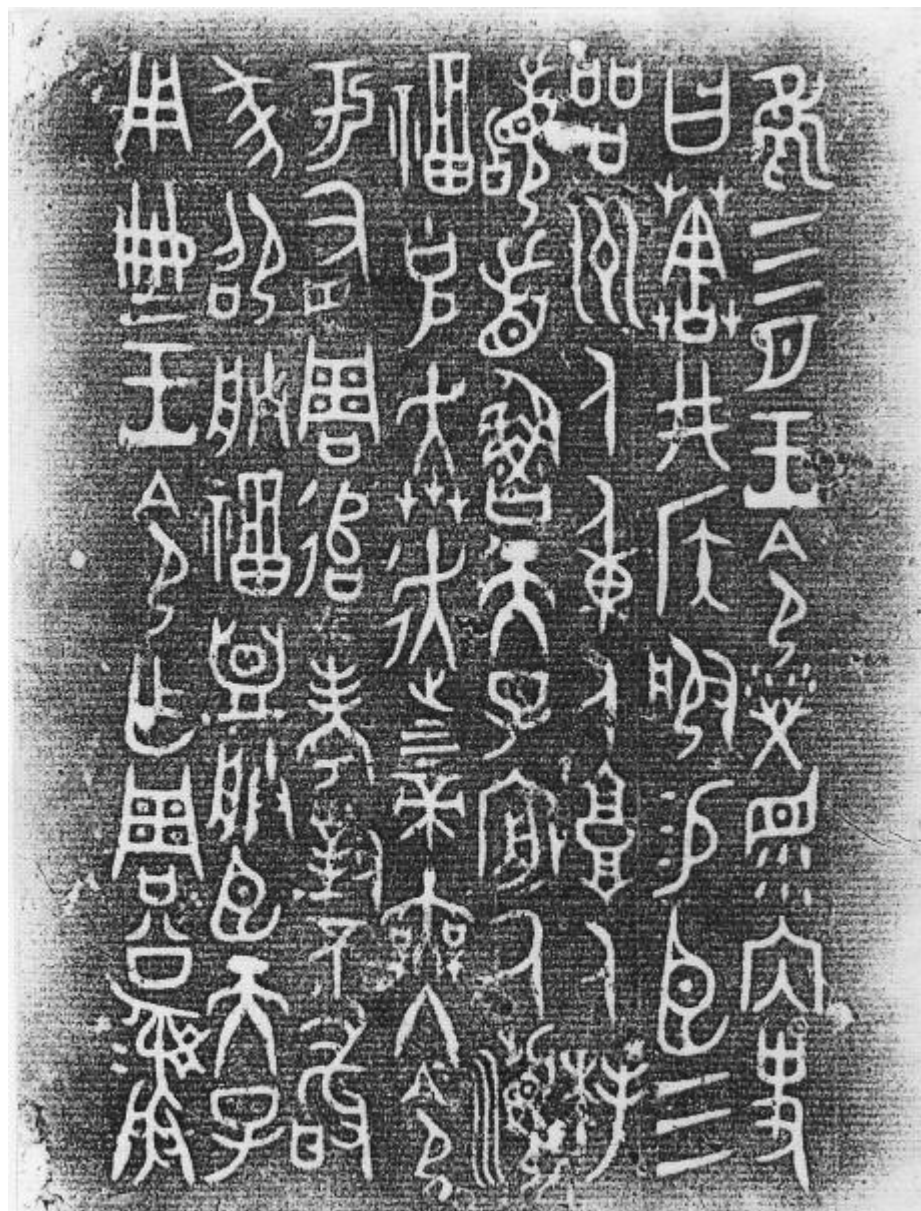 隹三月王令榮眔內史
曰𦱂井侯服易臣三
品州人重人𩫏人拜
稽首魯天子𢓊厥瀕
福克奔走上下帝無冬令
于有周追考對不敢
㒸卲朕福盟朕臣天子
用典王令乍周公彝